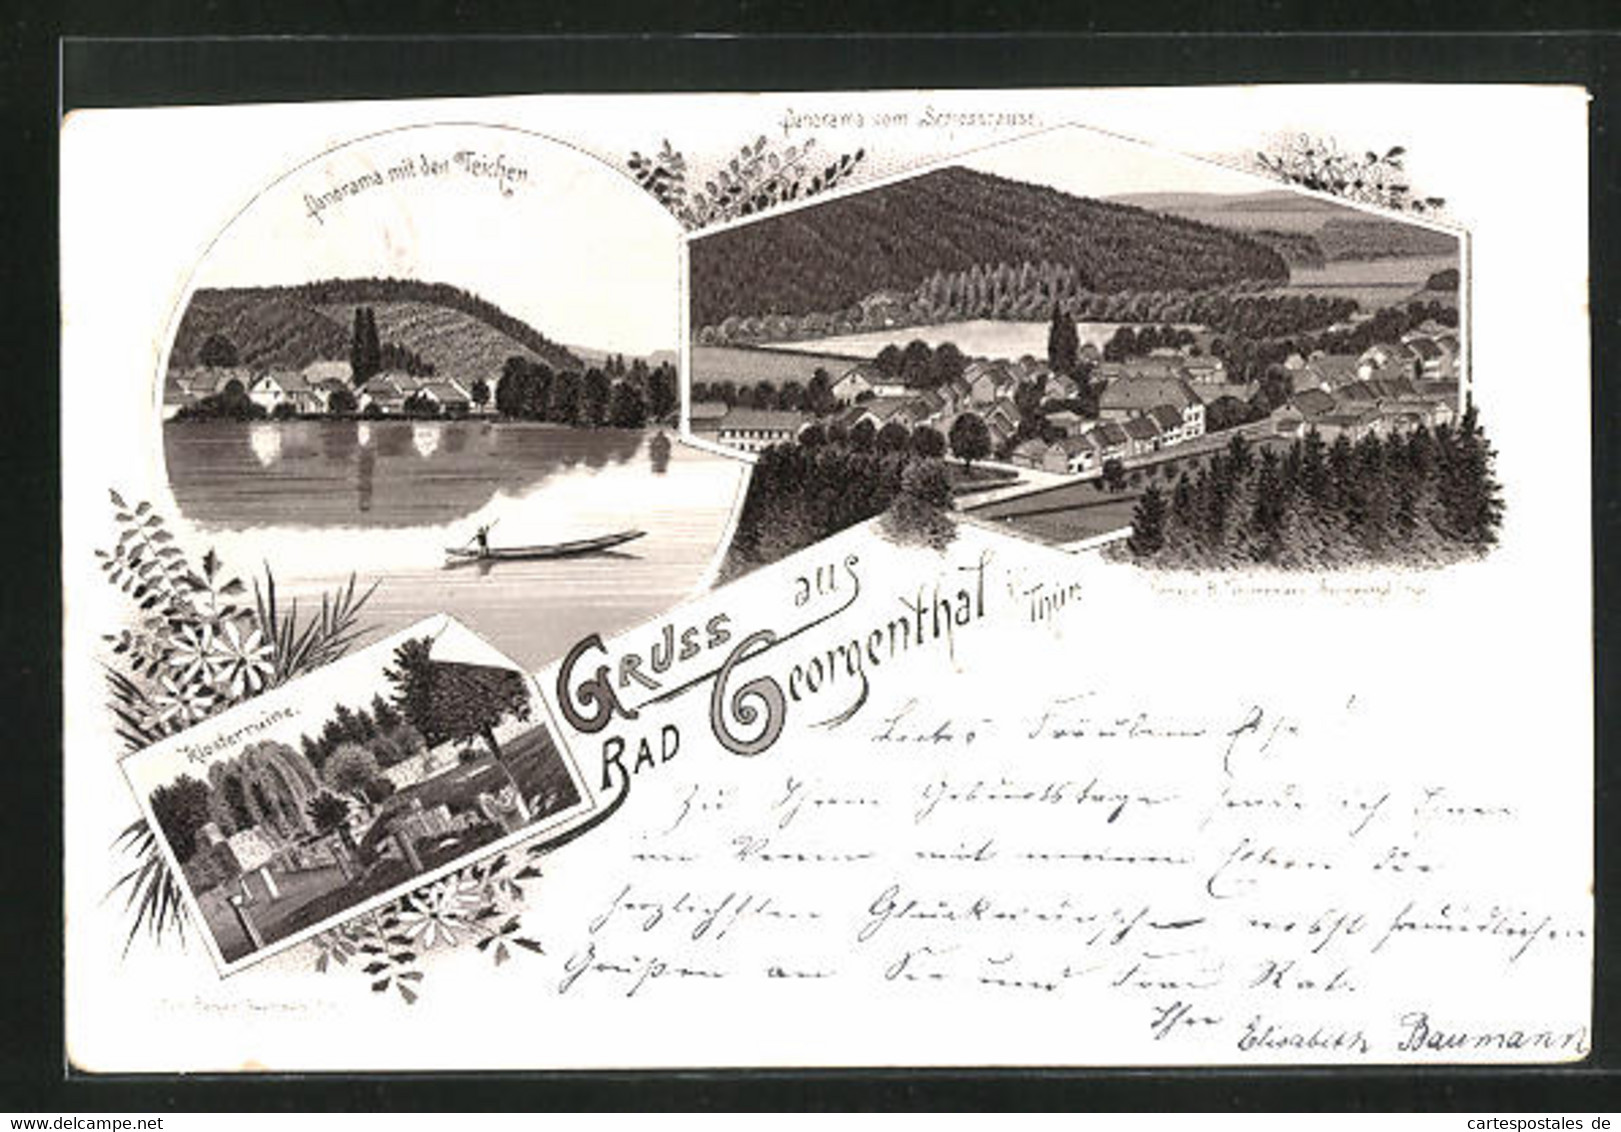 Panorama mit den Teichen.
Panorama vom
Klosterruine.
Gruss aus
Bad Georgenthal i/Thür.
Liebes Fräulein Else!
Zu Ihrem Geburtstage sende ich Ihnen
im Verein mit meinen Eltern die
herzlichsten Glückwünsche nebst freundlichen
Grüßen an Sie und Frau Rat.
Ihre Elisabeth Baumann
cartespostales de
www.cartespostales.com